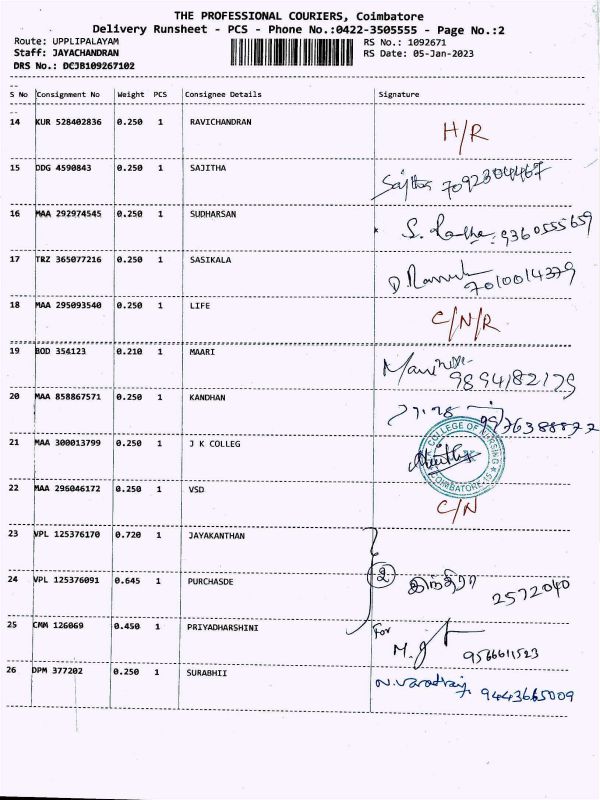 THE PROFESSIONAL COURIERS, Coimbatore
Delivery Runsheet - PCS - Phone No.:0422-3505555 - Page No.:2
Route: UPPLIPALAYAM RS No.: 1092671
Staff: JAYACHANDRAN RS Date: 05-Jan-2023
DRS No.: DCJB109267102
S No Consignment No Weight PCS Consignee Details Signature
14 KUR 528402836 0.250 1 RAVICHANDRAN H/R
15 DDG 4590843 0.250 1 SAJITHA Sajitha 7092304467
16 MAA 292974545 0.250 1 SUDHARSAN S. 9360555659
17 TRZ 365077216 0.250 1 SASIKALA D 7010014379
18 MAA 295093540 0.250 1 LIFE C/N/R
19 BOD 354123 0.210 1 MAARI 9894182179
20 MAA 858867571 0.250 1 KANDHAN
21 MAA 300013799 0.250 1 J K COLLEG COLLEGE OF NURSING COIMBATORE
22 MAA 296046172 0.250 1 VSD C/N
23 VPL 125376170 0.720 1 JAYAKANTHAN
24 VPL 125376091 0.645 1 PURCHASDE 2 இந்திரா 2572040
25 CMM 126069 0.450 1 PRIYADHARSHINI For M. 9566611523
26 DPM 377202 0.250 1 SURABHII N. Varadraj 9443665009